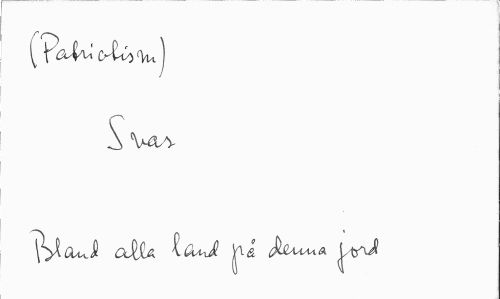 (Patriotism)
Svar
Bland alla land på denna jord